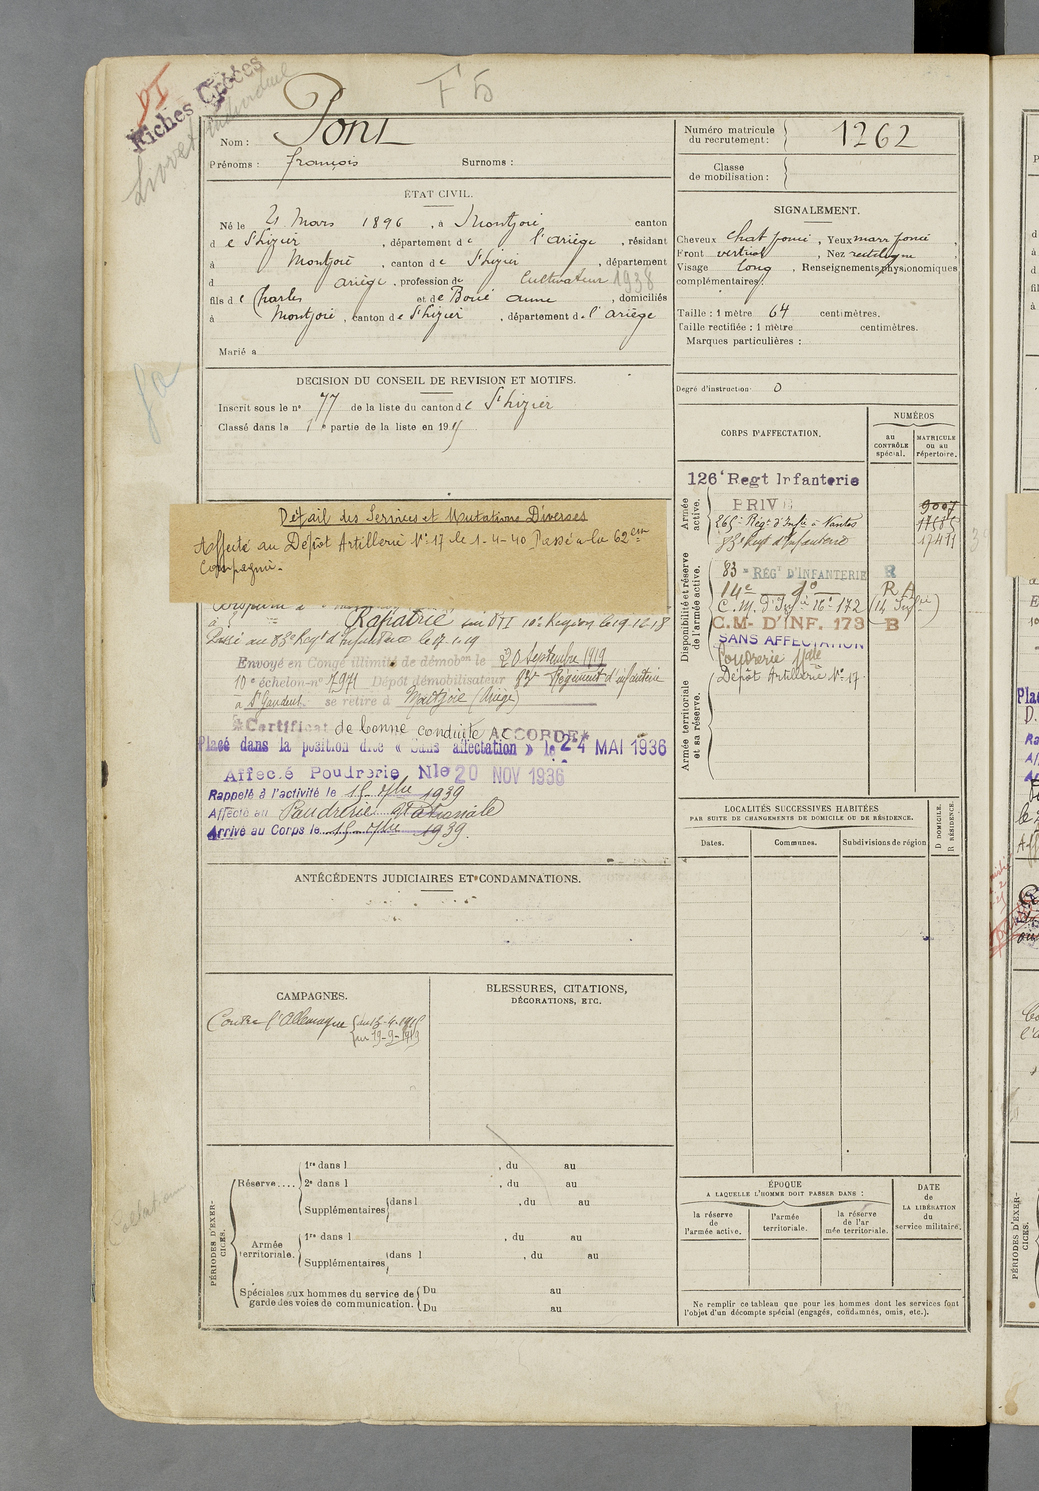 Fiches Créées
F 5
Nom : Pons
Prénoms : françois Surnoms :
ÉTAT CIVIL.
Né le 21 Mars 1896, à Montjoie canton
de St Lizier, département de l'ariège, résidant
à Montjoie, canton de St Lizier, département
d ariège, profession de Cultivateur 1938
fils de Charles et de Boué anne, domiciliés
à Montjoie, canton de St Lizier, département de l'ariège
Marié à
DECISION DU CONSEIL DE REVISION ET MOTIFS.
Inscrit sous le n° 77 de la liste du canton de St Lizier
Classé dans la 1e partie de la liste en 19
Détail des Services et Mutations Diverses
Affecté au Dépôt Artillerie N° 17 le 1-4-40 Passé à la 62e
Compagnie.
Rapatrié 10e Région le 19.12.18
Passé au 83e Regt d'Infanterie le 17.1.19
Envoyé en Congé illimité de démobon le 20 Septembre 1919
10e échelon-n° 7971 Dépôt démobilisateur Régiment d'infanterie
à St Gaudens se retire à Montjoie (Ariège)
Certificat de bonne conduite ACCORDÉ
Placé dans la position dite « Sans affectation » le 24 MAI 1936
Affecté Poudrerie Nle 20 NOV 1936
Rappelé à l'activité le 15 7bre 1939
Affecté au Poudrerie Nationale
Arrivé au Corps le 15 7bre 1939.
ANTÉCÉDENTS JUDICIAIRES ET CONDAMNATIONS.
CAMPAGNES.
Contre l'Allemagne { du 13-4-1915
au 19-9-1919
BLESSURES, CITATIONS,
DÉCORATIONS, ETC.
PÉRIODES D'EXERCICES.
Réserve....
1re dans l , du au
2e dans l , du au
Supplémentaires dans l , du au
Armée territoriale.
1re dans l , du au
Supplémentaires dans l , du au
Spéciales aux hommes du service de Du au
garde des voies de communication. Du au
Numéro matricule
du recrutement : 1262
Classe
de mobilisation :
SIGNALEMENT.
Cheveux chat foncé, Yeux marr foncé,
Front vertical, Nez rectiligne,
Visage long, Renseignements physionomiques
complémentaires :
Taille : 1 mètre 64 centimètres.
Taille rectifiée : 1 mètre centimètres.
Marques particulières :
Degré d'instruction : 0
CORPS D'AFFECTATION.
NUMÉROS
au
CONTRÔLE
spécial.
MATRICULE
ou au
répertoire.
Armée active.
126e Regt Infanterie
9007
265e Régt d'Infie à Nantes
83e Regt d'Infanterie
Disponibilité et réserve de l'armée active.
83e REGt D'INFANTERIE R
C. M. d'Infie 16e 172
C.M- D'INF. 173 B
SANS AFFECTATION
Poudrerie Nale
Dépôt Artillerie N° 17
Armée territoriale et sa réserve.
LOCALITÉS SUCCESSIVES HABITÉES
PAR SUITE DE CHANGEMENTS DE DOMICILE OU DE RÉSIDENCE.
Dates.
Communes.
Subdivisions de région
D DOMICILE.
R RÉSIDENCE.
ÉPOQUE
A LAQUELLE L'HOMME DOIT PASSER DANS :
la réserve
de
l'armée active.
l'armée
territoriale.
la réserve
de l'ar
mée territoriale.
DATE
de
LA LIBÉRATION
du
service militaire.
Ne remplir ce tableau que pour les hommes dont les services font
l'objet d'un décompte spécial (engagés, condamnés, omis, etc.).